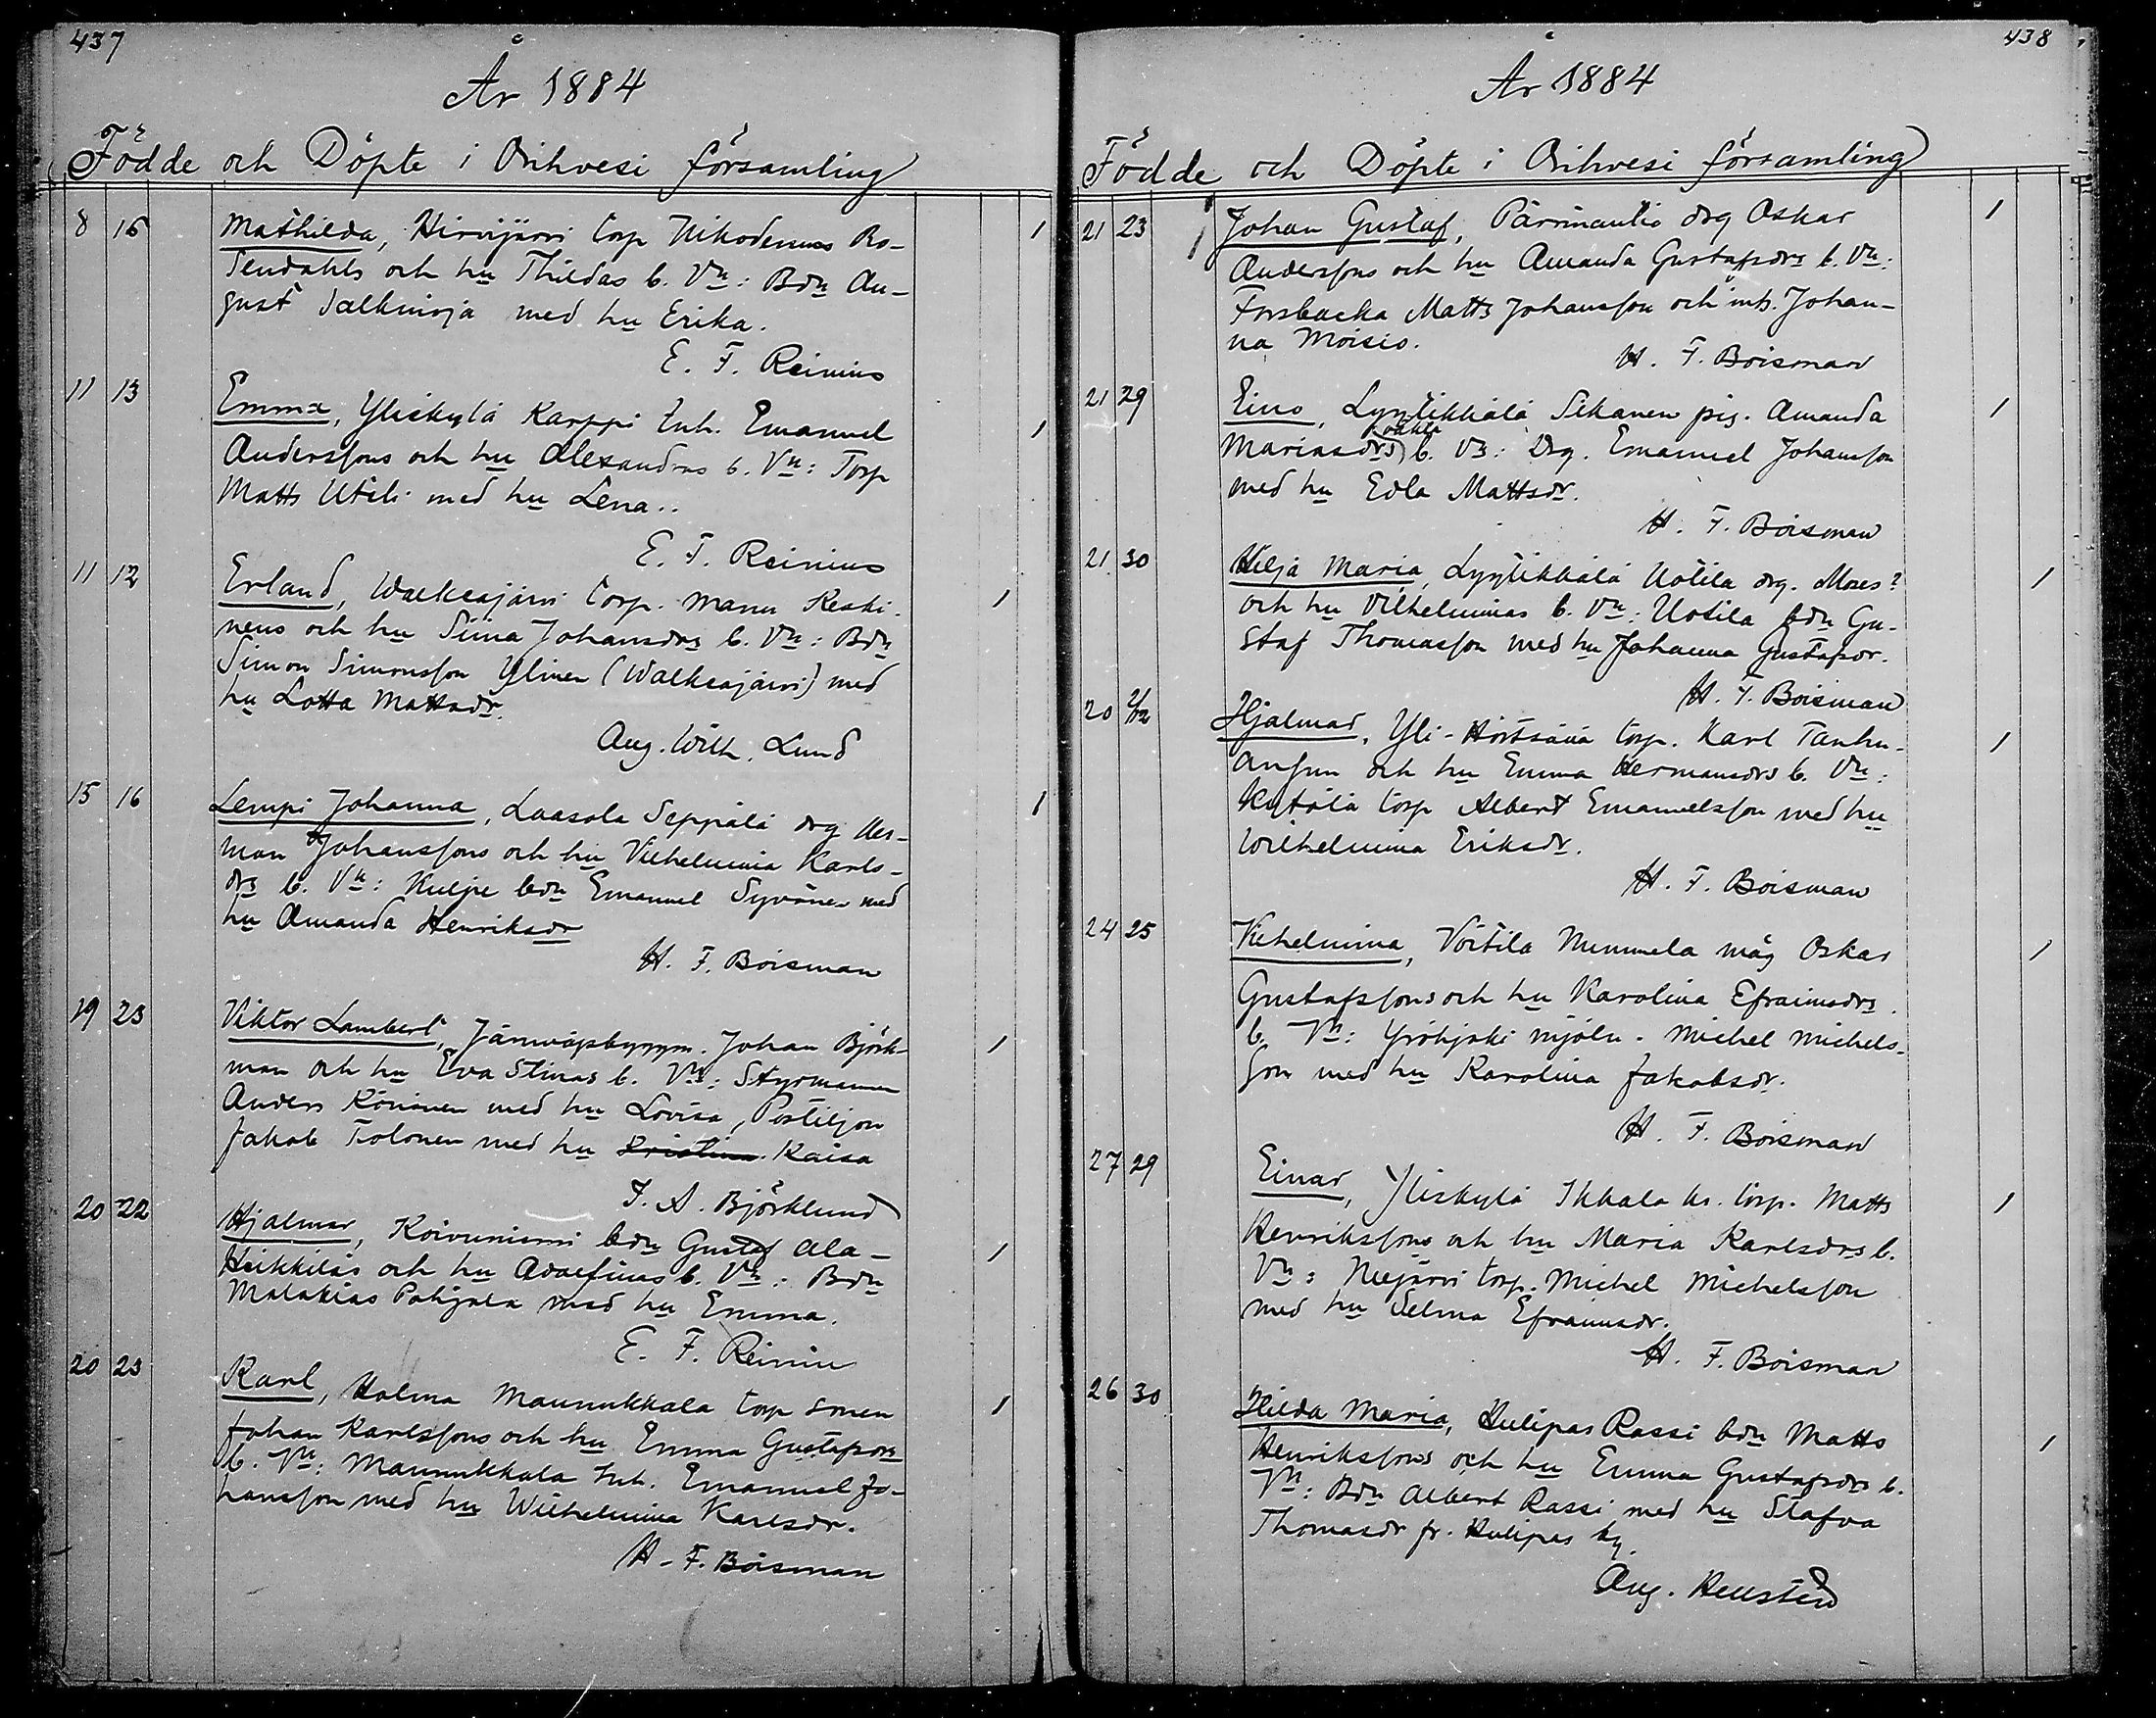 437
År 1884
Födde och Döpte i Orihvesi församling
8 15 Mathilda, Hirvijärvi torp Nikodemus Ro- 1
sendahls och hu Thildas b. Vn: Bdn Au-
gust Salkinoja med hu Erika.
E. F. Reinius
11 13 Emma, Yliskylä Karppi Inh. Emanuel 1
Anderssons och hu Alexandras b. Vn: Torp
Matts Uteli med hu Lena..
E. F. Reinius
11 12 Erland, Walkeajärvi torp. Manu Keski- 1
nens och hu Siina Johansdrs b. Vn: Bdn
Simon Simonsson Ylinen (Walkeajärvi) med
hu Lotta Mattsdr.
Aug. Wilh. Lund
15 16 Lempi Johanna, Laasola Seppälä drg Her- 1
man Johanssons och hu Vilhelmina Karls-
drs b. Vn: Kulju bdn Emanuel Syvänen med
hu Amanda Henriksdr
H. F. Boisman
19 23 Viktor Lambert, Järnvägsbyggm. Johan Björk- 1
man och hu Eva Stinas b. Vn: Styrmannen
Anders Könönen med hu Lovisa, Postiljon
Jakob Tolonen med hu Kristina Kaisa
J. A. Björklund
20 22 Hjalmar, Koivuniemi bdn Gustaf Ala- 1
Heikkiläs och hu Adolfinas b. Vn: Bdn
Malakias Pohjala med hu Emma.
E. F. Reiniu
20 23 Karl, Holma Maunukkala torp sonen 1
Johan Karlssons och hu Emma Gustafsdrs
b. Vn: Maunukkala Inh. Emanuel Jo-
hansson med hu Wilhelmina Karlsdr.
H. F. Boisman
438
År 1884
Födde och Döpte i Orihvesi församling
21 23 Johan Gustaf, Pärrinautio drg Oskar 1
Anderssons och hu Amanda Gustafsdrs b. Vn:
Forsbacka Matts Johansson och inh. Johan-
na Moisio.
H. F. Boisman
21 29 Eino, Lyytikkälä Sikanen pig. Amanda 1
Mariasdrs oäkta b. Vn: Drg. Emanuel Johansson
med hu Edla Mattsdr.
H. F. Boisman
21 30 Hilja Maria, Lyytikkälä Uotila drg. Moses? 1
och hu Vilhelminas b. Vn: Uotila bdn Gu-
staf Thomasson med hu Johanna Gustafsdr.
H. F. Boisman
20 2/12 Hjalmar, Yli-Hirtsiää torp. Karl Tanhu- 1
anpun och hu Emma Hermansdrs b. Vn:
Kutala torp Albert Emanuelsson med hu
Wilhelmina Eriksdr.
H. F. Boisman
24 25 Vilhelmina, Voitila Nummela måg Oskar 1
Gustafssons och hu Karolina Efraimsdrs
b. Vn: Yröhjoki mjöln. Michel Michels-
son med hu Karolina Jakobsdr.
H. F. Boisman
27 29 Einar, Yliskylä Ikkala ks. torp. Matts 1
Henrikssons och hu Maria Karlsdrs b.
Vn: Neejärvi torp. Michel Michelsson
med hu Selma Efraimsdr.
H. F. Boisman
26 30 Hilda Maria, Hulipas Rassi bdn Matts 1
Henrikssons och hu Emma Gustafsdrs b.
Vn: Bdn Albert Rassi med hu Stafva
Thomasdr fr. Hulipas by.
Aug. Hellstén